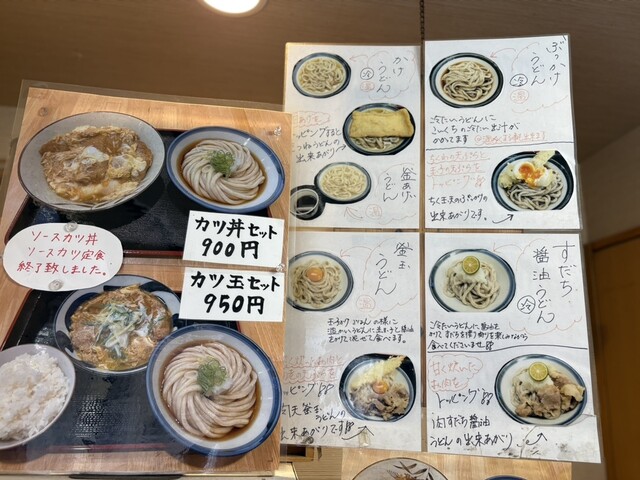 カツ丼セット
900円
ソースカツ丼
ソースカツ定食
終了致しました。
カツ玉セット
950円
かけ
うどん
冷
温
トッピングすると
きつねうどんの
出来あがり
釜あげ
うどん
ぶっかけ
うどん
冷
温
冷たいうどんに
こいくちの冷たい出汁が
かかってます
トッピング
ちく玉天ぶっかけの
出来あがりです。
釜玉
うどん
温
玉子かけごはんの様に
温かいうどんに生玉子と醤油
をかけて混ぜて食べます。
トッピング
肉天釜玉
うどんの
出来あがりです
すだち
醤油うどん
冷
冷たいうどんに醤油を
かけてすだちを搾り香りを楽しみながら
食べてくださいませ
甘く炊いた
お肉を
トッピング
肉すだち醤油
うどんの出来あがり